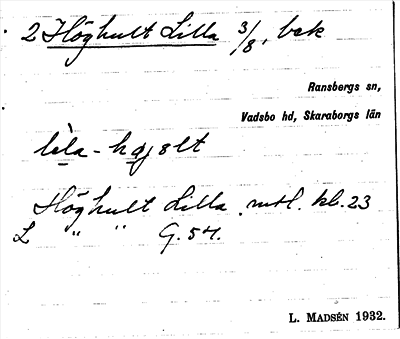 2 Höghult Lilla 3/8, bek
Ransbergs sn,
Vadsbo hd, Skaraborgs län
lìla - høgølt
Höghult Lilla. mtl. kb. 23
L " " G. 54.
L. MADSÉN 1932.